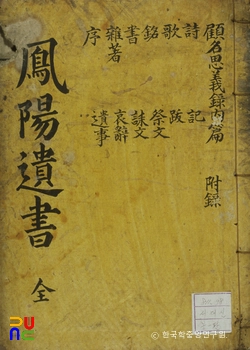 顧名思義錄內篇 附錄
詩 記
歌 跋
銘 祭文
書 誄文
雜著 哀辭
序 遺事
鳳陽遺書 全
ⓒ 한국학중앙연구원